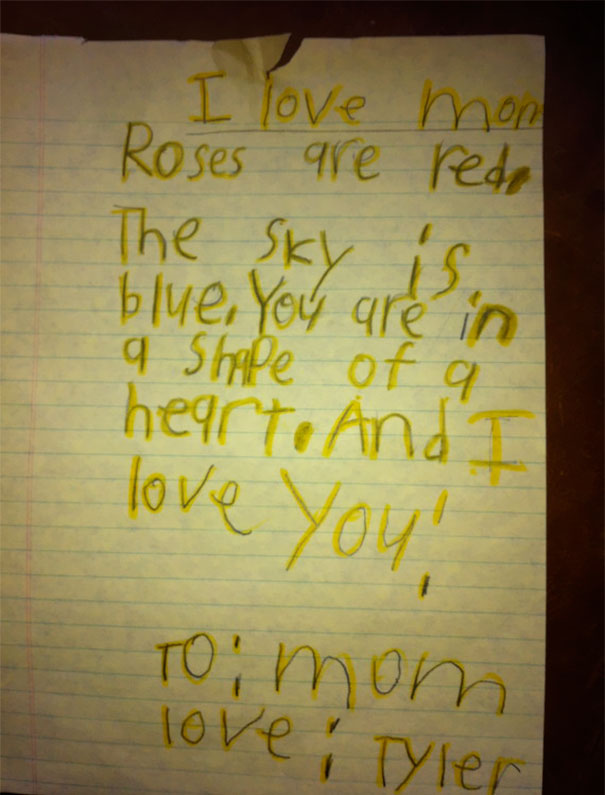 I love mom
Roses are red.
The sky is
blue. You are in
a shape of a
heart. And I
love you!
To; mom
love; Tyler